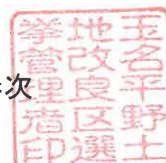 次
玉名平野土
地改良区選
挙管理者印